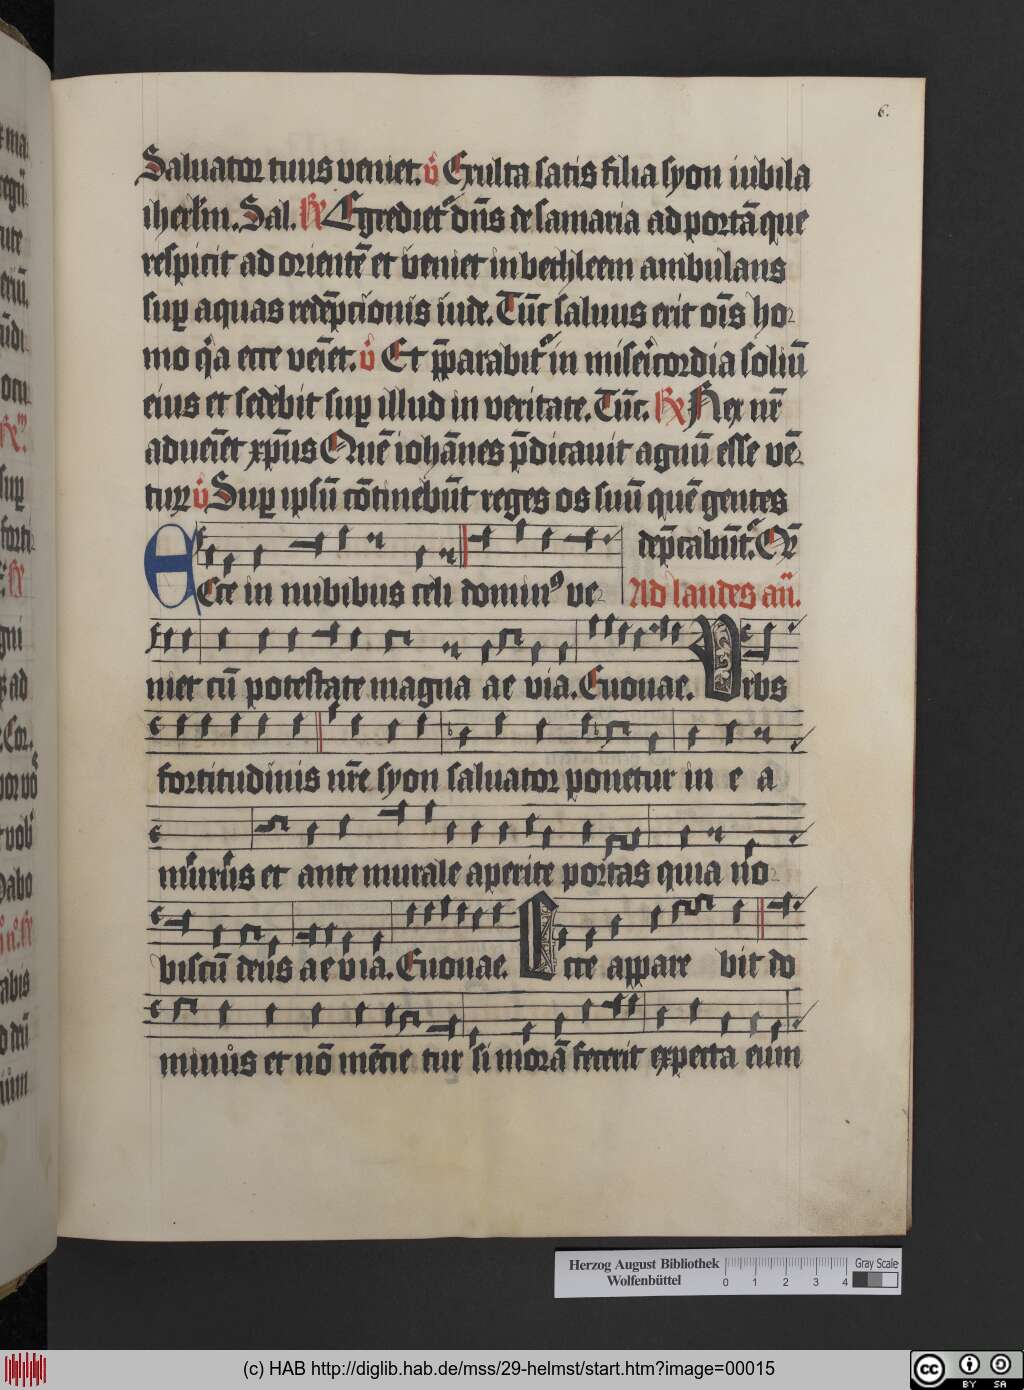 6.
Saluator tuus veniet. v̊ Exulta satis filia syon iubila
iherl̄m. Sal. R̸ Egrediet᷑ dn̄s de samaria ad portā que
respicit ad orientē et veniet in bethleem ambulans
suꝑ aquas redēpcionis iude. Tūc saluus erit oīs ho
mo q̇a ecce veīet. v̊ Et p̄parabit᷑ in misericordia soliū
eius et sedebit suꝑ illud in veritate. Tūc. R̸ Rex nr̄
adueīet xp̄us Quē iohānes p̄dicauit agnū esse vē
turꝫ v̊ Suꝑ ipsū cōtinebūt reges os suū quē gentes
dep̄cabūt᷑. Qē
Ecce in nubibus celi domin⁹ ve Ad laudes añ.
niet cū potestate magna ae via. Euouae. Urbs
fortitudinis nr̄e syon saluator ponetur in e a
murus et ante murale aperite portas quia no
biscū deus aevia. Euouae. Ecce appare bit do
minus et nō mēcie tur si morā fecerit expecta eum
Herzog August Bibliothek
Wolfenbüttel
0 1 2 3 4
Gray Scale
(c) HAB http://diglib.hab.de/mss/29-helmst/start.htm?image=00015
cc BY SA